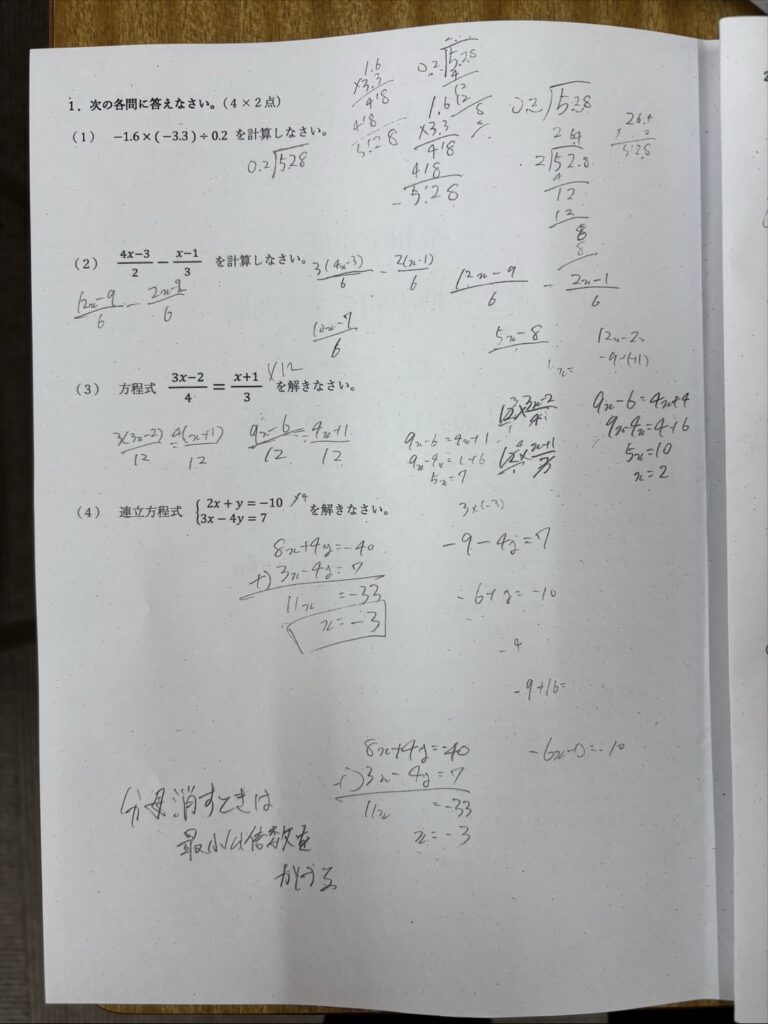 1．次の各問に答えなさい。（４×２点）
（1） −1.6×(−3.3)÷0.2 を計算しなさい。
0.2)528
1.6
×3.3
418
418
5.28
0.2)5.28
4
12
12
8
1.6
×3.3
418
418
5.28
0.2)5.28
264
2)52.8
4
12
12
8
8
26.4
× 2
5:28
（2） (4x−3)/2 − (x−1)/3 を計算しなさい。
3(4x-3)/6 - 2(x-1)/6
12x-9/6 - 2x-1/6
12x-9/6 - 2x-2/6
12x-7/6
5x-8
12x-2x
-9-(+1)
（3） 方程式 (3x−2)/4 = (x+1)/3 を解きなさい。
×12
3(3x-2)/12 = 4(x+1)/12
9x-6/12 = 4x+1/12
9x-6=4x+1
9x-4x=1+6
5x=7
12×3x-2/4
12×x+1/3
9x-6=4x+4
9x-4x=4+6
5x=10
x=2
（4） 連立方程式 { 2x + y = −10
3x − 4y = 7 を解きなさい。
×4
8x+4y=-40
+)3x-4y=7
11x =-33
x=-3
3×(-3)
-9-4y=7
-6+y=-10
-4
-9+16=
8x+4y=-40
+)3x-4y=7
11x =-33
x=-3
分母消すときは
最小公倍数を
かける